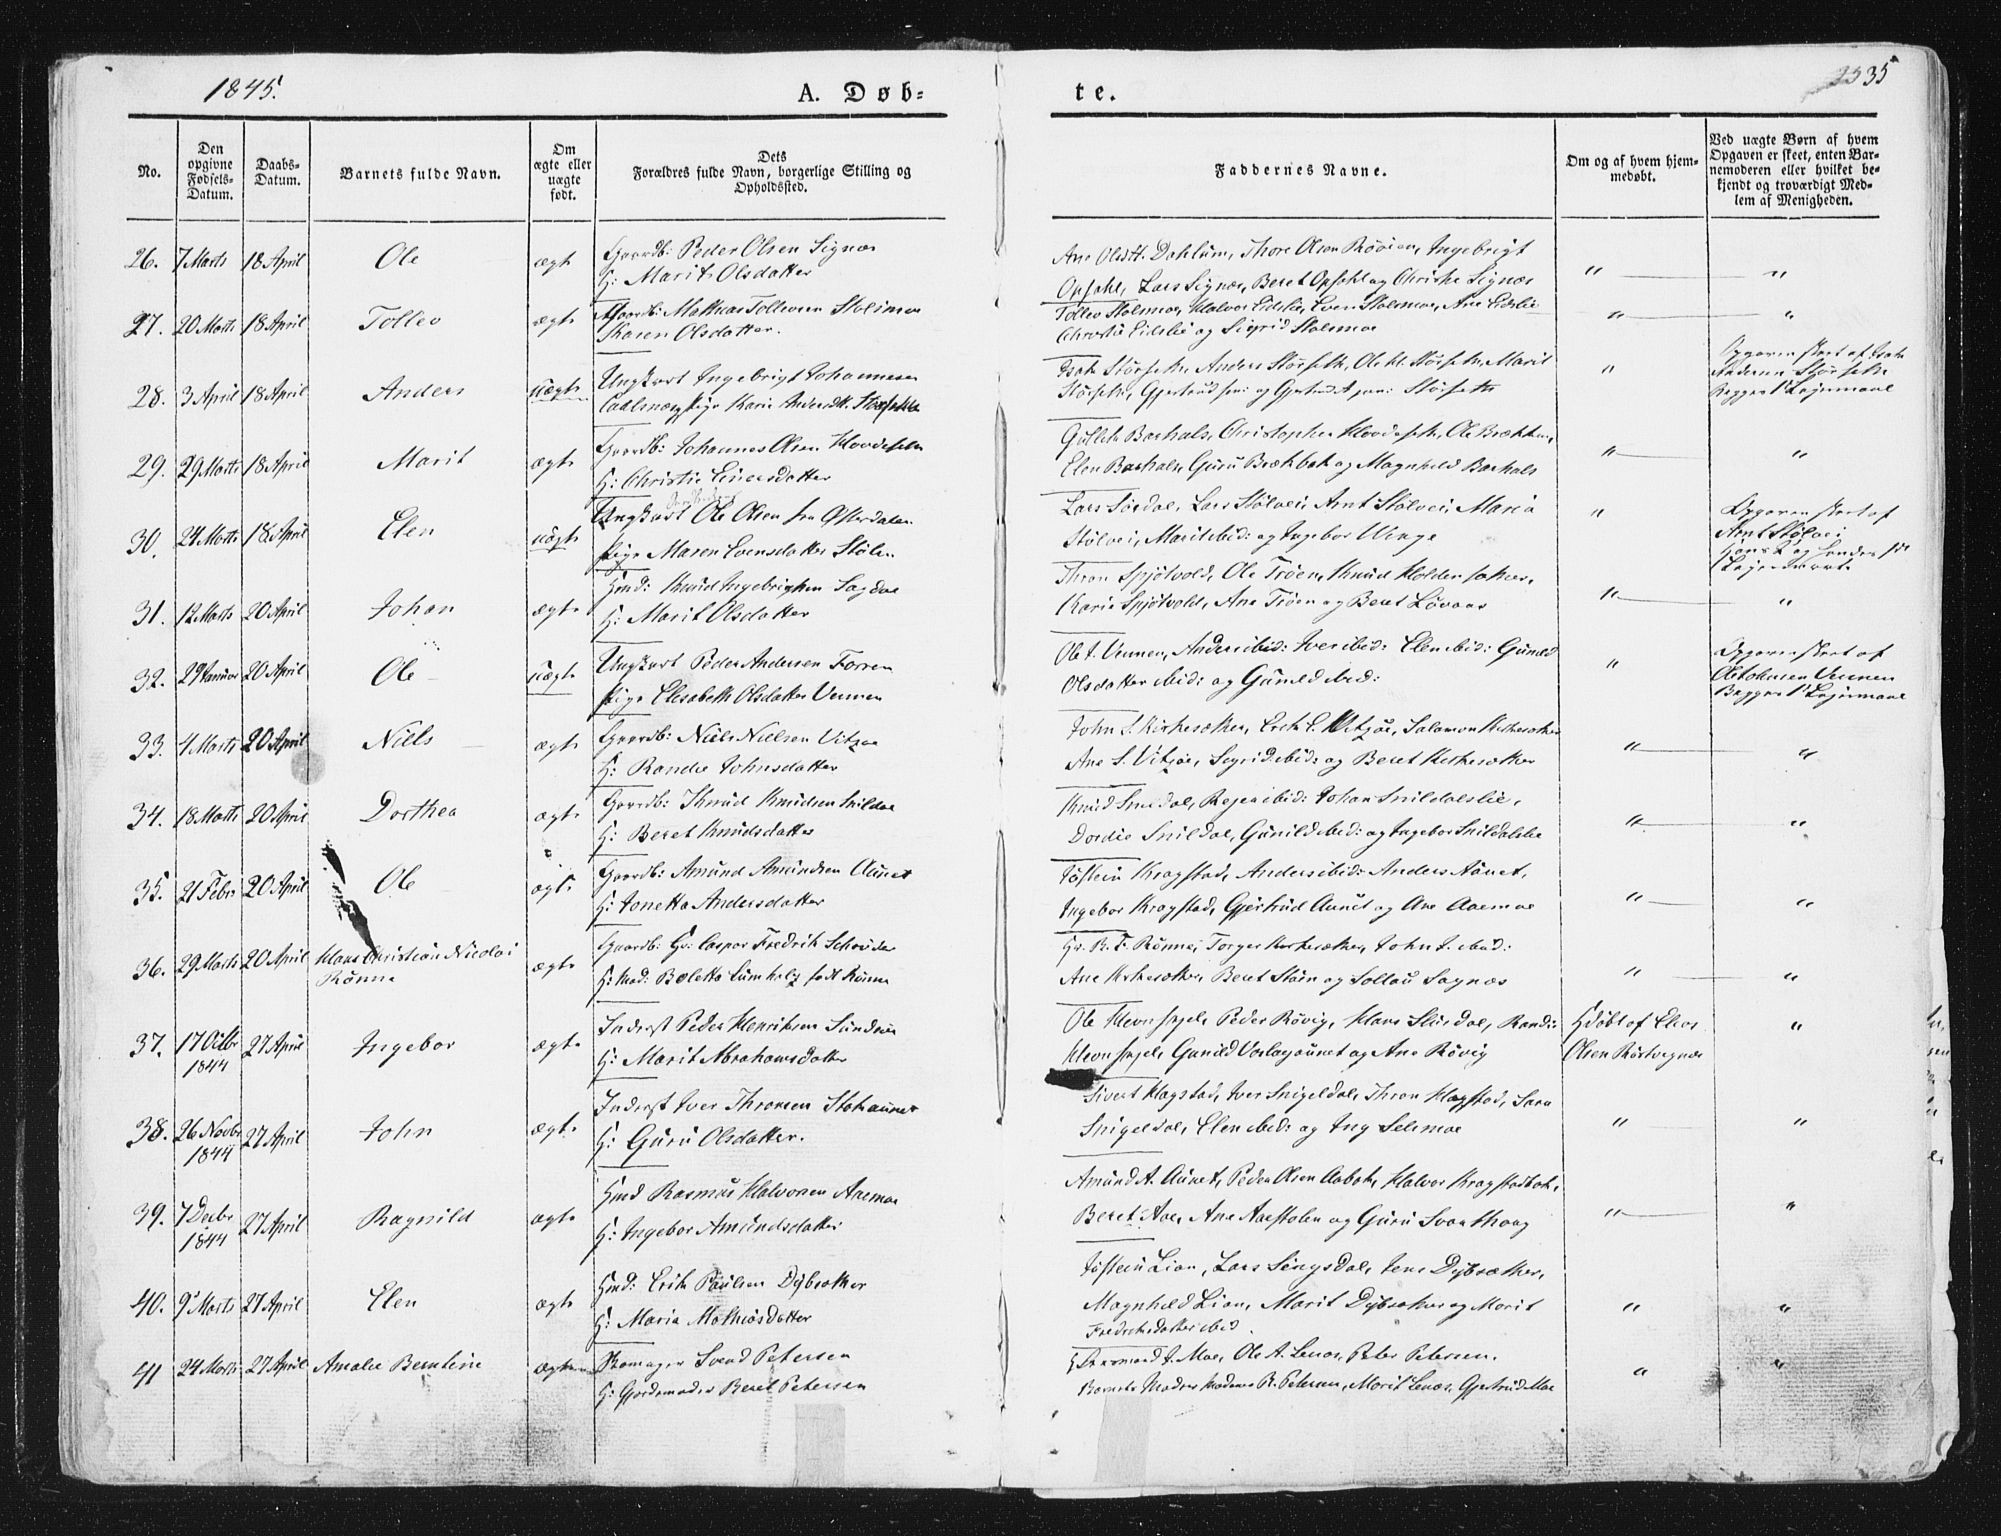 1845.
A. Døb-
te.
35
No.
Den opgivne Fødsels-Datum.
Daabs-Datum.
Barnets fulde Navn.
Om ægte eller uægte født.
Dets
Forældres fulde Navn, borgerlige Stilling og
Opholdssted.
Faddernes Navne.
Om og af hvem hjem-
medøbt.
Ved uægte Børn af hvem
Opgaven er skeet, enten Bar-
nemoderen eller hvilket be-
kjendt og troværdigt Med-
lem af Menigheden.
26. 7 Marts 18 April Ole ægte Gaardb: Peder Olsen Signæs
H: Marit Olsdatter
Ane Olsdt. Dahlum, Thore Olsen Røøien, Ingebrigt
Opsahl, Lars Signæs, Beret Opsahl og Christie Signæs
27. 20 Marts 18 April Tollev ægte Gaardb: Mathias Tollevsen Stolsmoe
Karen Olsdatter.
Tollev Stolsmoe, Halvor Eidslie, Even Stolsmoe, Ane Eidslie
Christie Eidslie og Sigrid Stolsmoe
28. 3 April 18 April Anders uægte Ungkarl Ingebrigt Johannesen
Pige Karie Andersdt. Størseth
Størseth, Anders Størseth, Ole Størseth, Marit
Størseth, Gjertrud sen: og Gjertrud A. jun: Størseth
Opgaven skeet af
Andersen Størseth
Begges 1ste Leiermaal
29. 29 Marts 18 April Marit ægte Gaardb: Johannes Olsen
H: Christie Einersdatter
Barhals, Christopher, Ole Brækken,
Elen Barhals, Guru Brækbak og Magnhild Barhals
30. 24 Marts 18 April Elen uægte Ungkarl Ole Olsen fra Østerdalen
Pige Maren Evensdatter Stølen
Lars Sørdal, Lars Stølvei, Arnt Stølvei, Maria
Stølvei, Marit ibid: og Ingebor Winge
Opgaven skeet af
Arnt Stølvei
31. 12 Marts 20 April Johan ægte Hmd: Knud Ingebrigtsen Sagdal
H: Marit Olsdatter
Thron Spjøtvold, Ole Trøen, Knud Holdersaker,
Karie Spjøtvold, Ane Trøen og Beret Løvaas
32. 29 Januar 20 April Ole uægte Ungkarl Peder Andersen Forren
Pige Elisabeth Olsdatter Vennen
Ole T. Vennen, Anders ibid: Iver ibid: Elen ibid: Gunild
Olsdatter ibid: og Gunild ibid:
Opgaven skeet af
Ole Johnsen Vennen
Begges 1ste Leiermaal
33. 4 Marts 20 April Niels ægte Gaardb: Niels Nielsen Vitzøe
H: Randie Johnsdatter
John S. Kirkesæther, Erik E. Vitzøe, Salamon Kirkesæther
Ane S. Vitzøe, Sigrid ibid: og Beret Kirkesæther
34. 18 Marts 20 April Dorthea ægte Gaardb: Knud Knudsen Snildal
H: Beret Knudsdatter
Knud Snildal, ibid: Johan Snildalslie,
Dordie Snildal, Gunild ibid: og Ingebor Snildalslie
35. 21 Febr 20 April Ole ægte Gaardb: Amund Amundsen Aunet
H: Jonetta Andersdatter
Jøstein Kragstad, Anders ibid: Anders Aunet,
Ingebor Kragstad, Gjertrud Aunet og Ane Aaemoe
36. 29 Marts 20 April Hans Christian Nicolai
Rønne ægte Gaardb: Hr: Caspar Fredrik Schrøder
H: Mad: Boletta Lumholz født Rønne
Hr. R. F. Rønne, Torger Kirkesæther, John J. ibid:
Ane Kirkesæther, Beret Støen og Sagnæs
37. 17 Octbr 1844 27 April Ingebor ægte Inderst Peder Henriksen Sundøen
H: Marit Abrahamsdatter
Ole Hevnskjel, Peder Røvig, Hans Slørdal, Randi
Hevnskjel, Gunild Vaslagaunet og Ane Røvig
Hdøbt af Elias
Olsen Røstvegnæs
38. 26 Novbr 1844 27 April John ægte Inderst Iver Thronsen Stohaunet
H: Guru Olsdatter.
Sivert Hagstad, Iver Snigeldal, Thron Hagstad, Sara
Snigeldal, Elen ibid: og Ing Selsmoe
39. 7 Decbr 1844 27 April Ragnild ægte Hmd Rasmus Halvorsen Aaemoe
H: Ingebor Amundsdatter
Amund A. Aunet, Peder Olsen Aabak, Halvor Kragstadbak,
Beret Aae, Ane Aaestolen og Guru Svanthaug
40. 9 Marts 27 April Elen ægte Hmd: Erik Paulsen Dybsæther
H: Maria Mathiasdatter
Jøstein Lian, Lars Singsdal, Jens Dybsæther,
Magnhild Lian, Marit Dybsæther og Marit
Fredriksdatter ibid.
41 24 Marts 27 April Amalie Berntine ægte Skomager Svend Petersen
H: Gjordemoder Beret Petersen
J. Moe, Ole A. Lenæs, Peter Petersen,
Barnets Moder Madame B. Petersen, Marit Lenæs, Gjertrud Moe